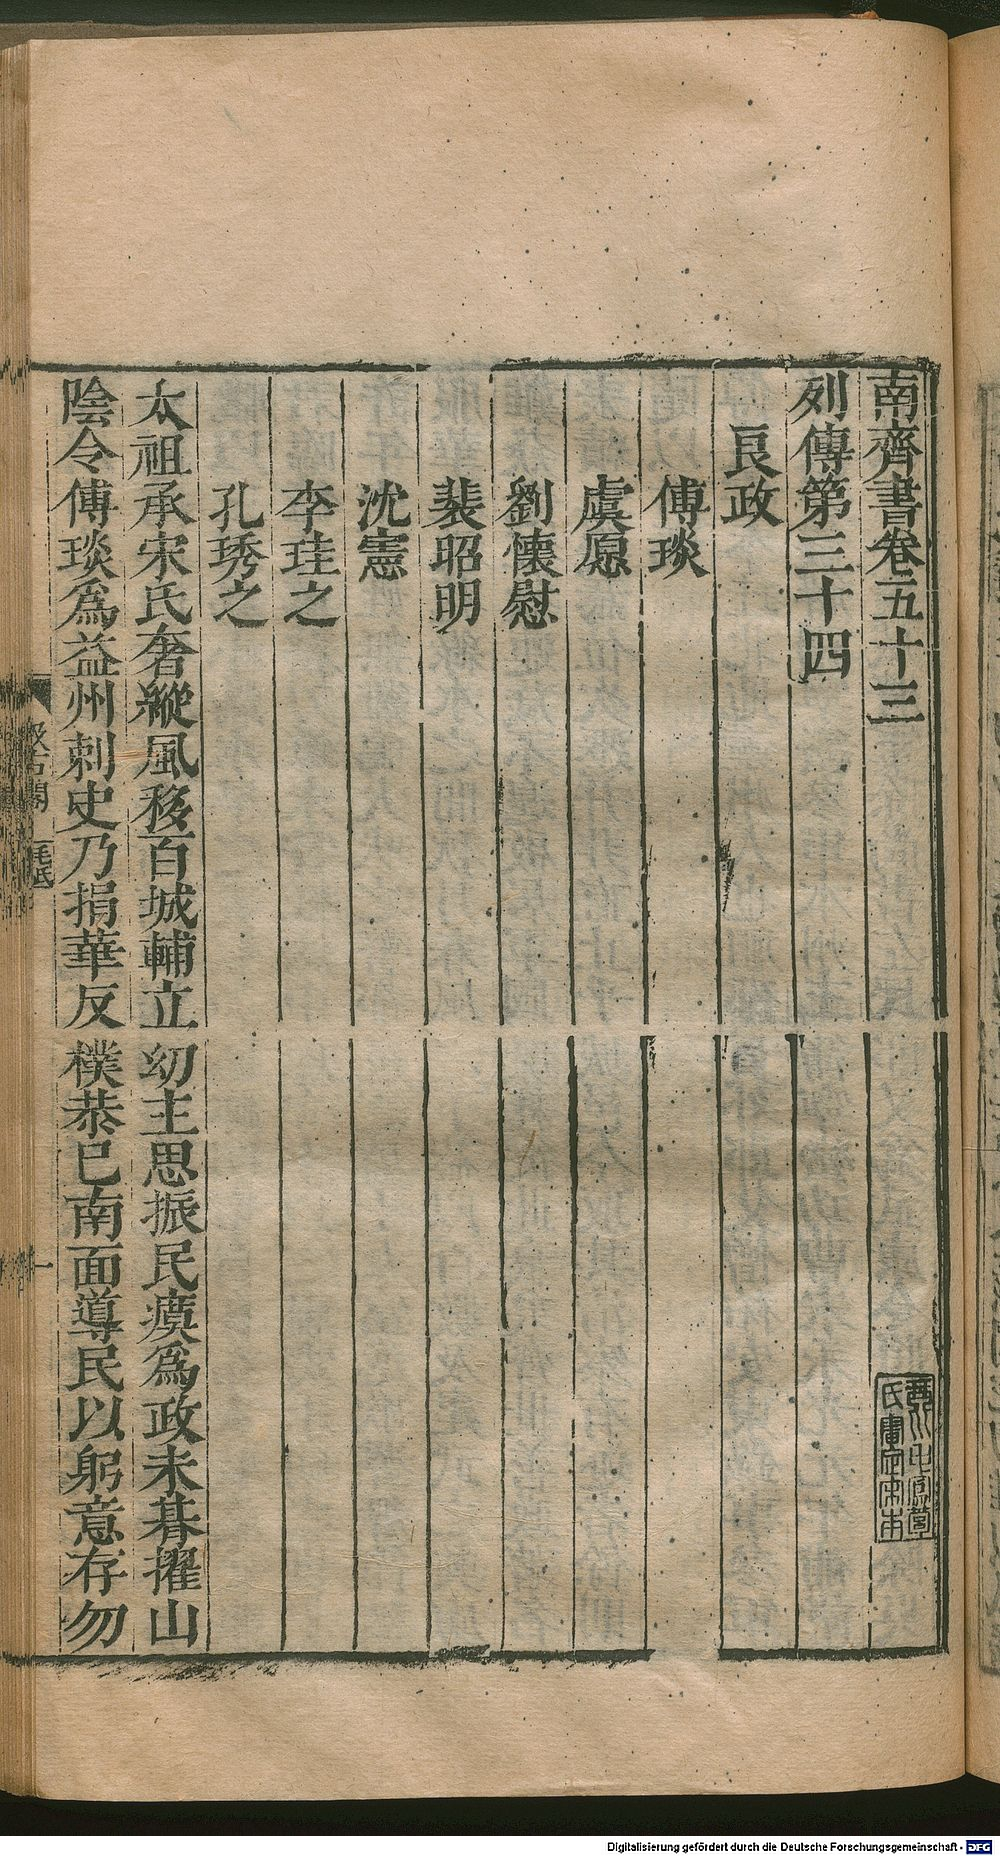 南齊書卷五十三
列傳第三十四
良政
傅琰
虞愿
劉懷慰
裴昭明
沈憲
李珪之
孔琇之
太祖承宋氏奢縱風移百城輔立幼主思振民瘼爲政未朞擢山
陰令傅琰爲益州刺史乃捐華反樸恭已南面導民以躬意存勿
汲古閣
毛氏
一
Digitalisierung gefördert durch die Deutsche Forschungsgemeinschaft - DFG